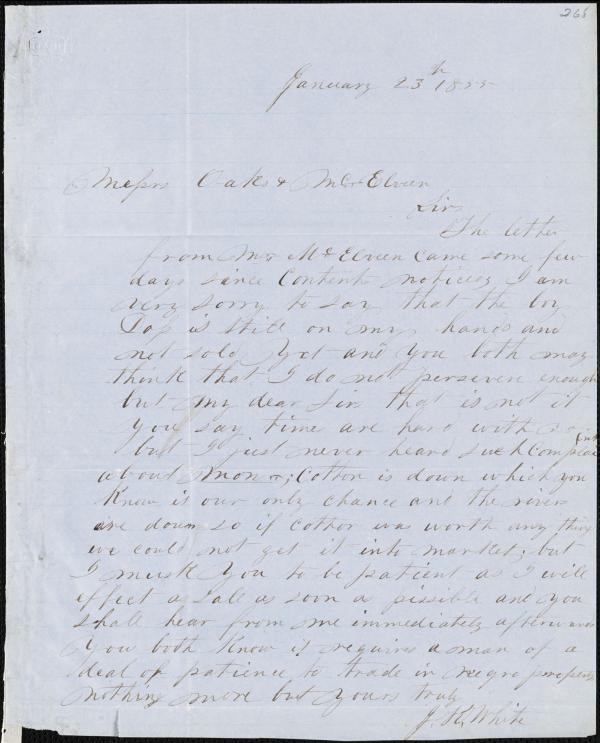 268
January 23th 1855
Messrs Oaks & McElveen
Sir
The letter
from Mr McElveen came some few
days since Contents noticed I am
very sorry to say that the boy
is still on my hands and
not sold yet and you both may
think that I do not persevere enough
but my dear Sir that is not it
you say time are hard with
but I just never heard such complaint
about money; Cotton is down which you
Know is our only chance and the rivers
are down so if cotton was worth any thing
we could not get it into market; but
I must you to be patient as I will
effect a Sale as soon as possible and you
Shall hear from me immediately afterwards
You both Know it requires a man of a
deal of patience to trade in negro property
nothing more but yours truly
J. R. White